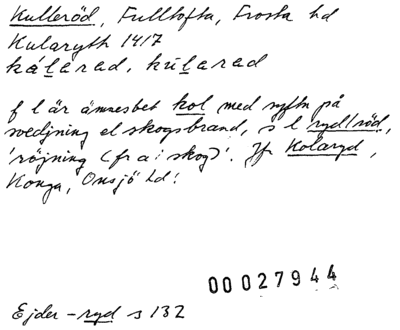 Kulleröd, Fulltofta, Frosta hd
Kularyth 1417
kálarad, kúlarad
f l är ämnesbet kol med syftn på
svedjning el skogsbrand, s l ryd/röd,
'röjning (fr a i skog)'. Jfr Kolaryd,
Konga, Onsjö hd!
00027944
Ejder-ryd s 132